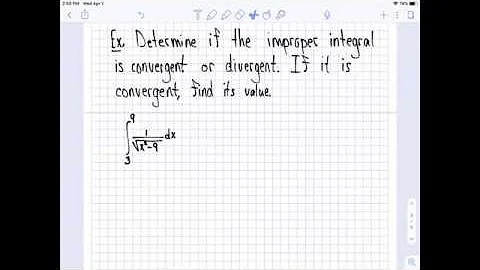 2:50 PM Wed Apr 1
76%
Ex. Determine if the improper integral
is convergent or divergent. If it is
convergent, find its value.
∫₃⁹ 1/√(x²-9) dx